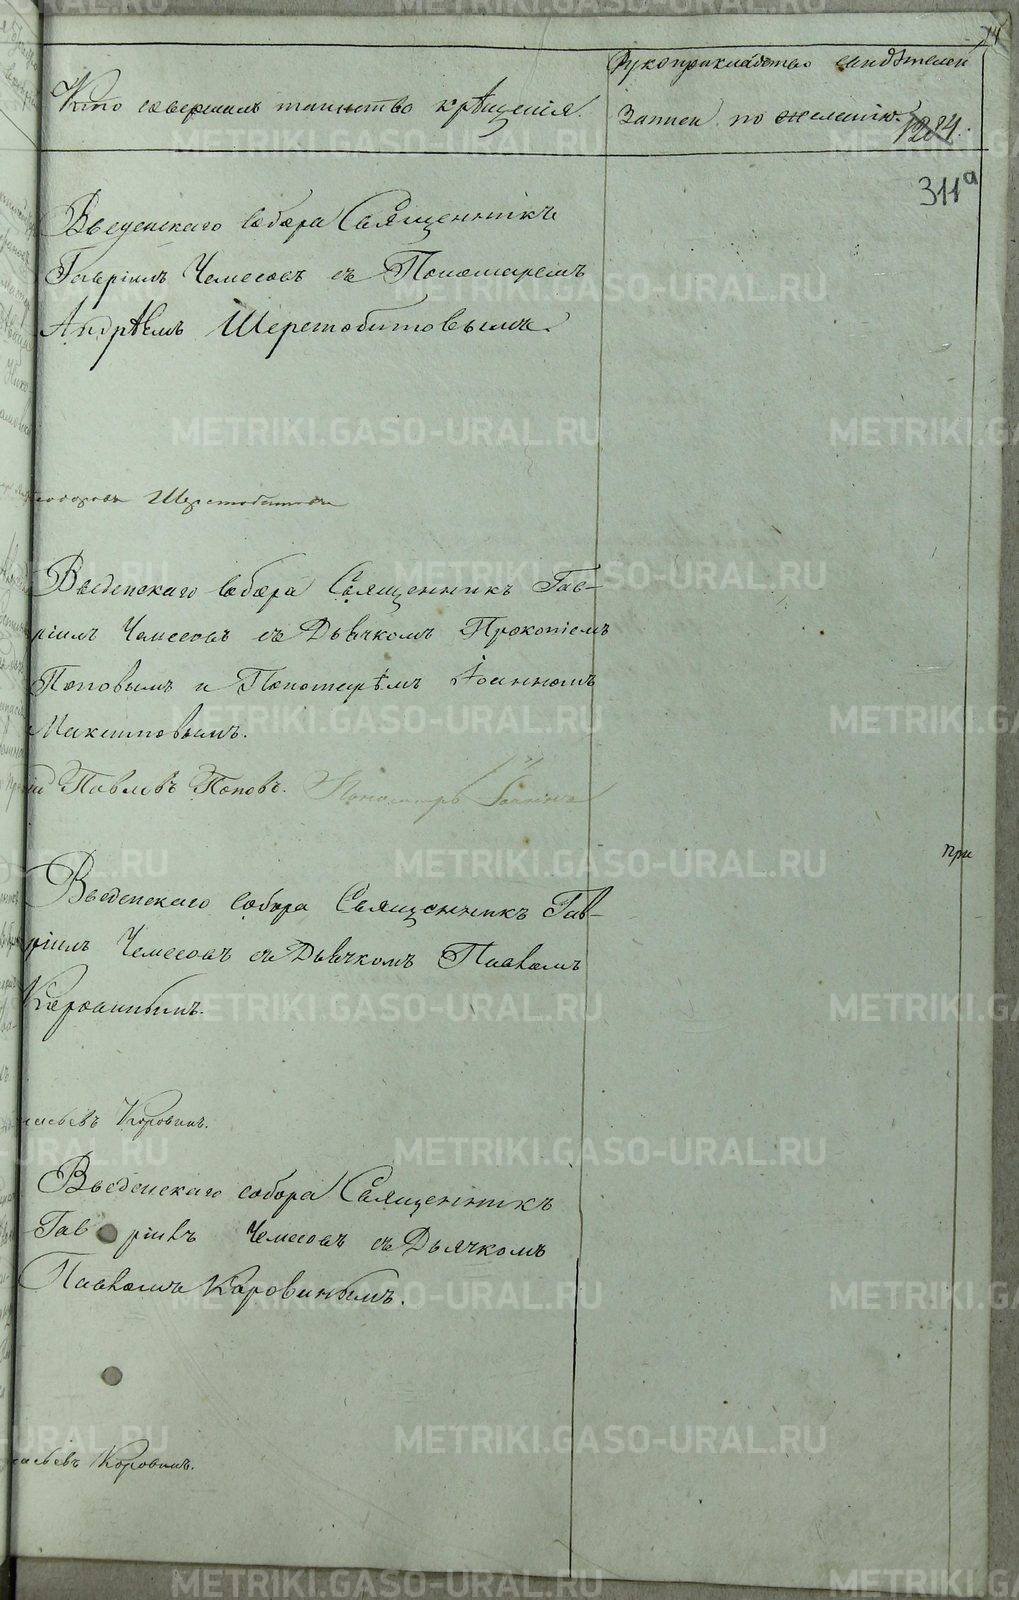 14
Кто совершилъ таинство крѣщенія.
Рукоприкладство свидѣтелей
Записи по желанію.
1284.
311а
Введенскаго собора Священникъ
Гавріилъ Чемесовъ съ Пономаремъ
Андрѣемъ Шерстобитовымъ.
Шерстобитовъ
Введенскаго собора Священникъ Гав-
ріилъ Чемесовъ съ Дьячкомъ Прокопіемъ
Поповымъ и Пономарѣмъ Іоанномъ
Максимовымъ.
Павловъ Поповъ. Пономарь
При
Введенскаго собора Священникъ Гав-
ріилъ Чемесовъ съ Дьячкомъ Павломъ
Коровинымъ.
Коровинъ.
Введенскаго собора Священникъ
Гавріилъ Чемесовъ съ Дьячкомъ
Павломъ Коровинымъ.
Коровинъ.
METRIKI.GASO-URAL.RU